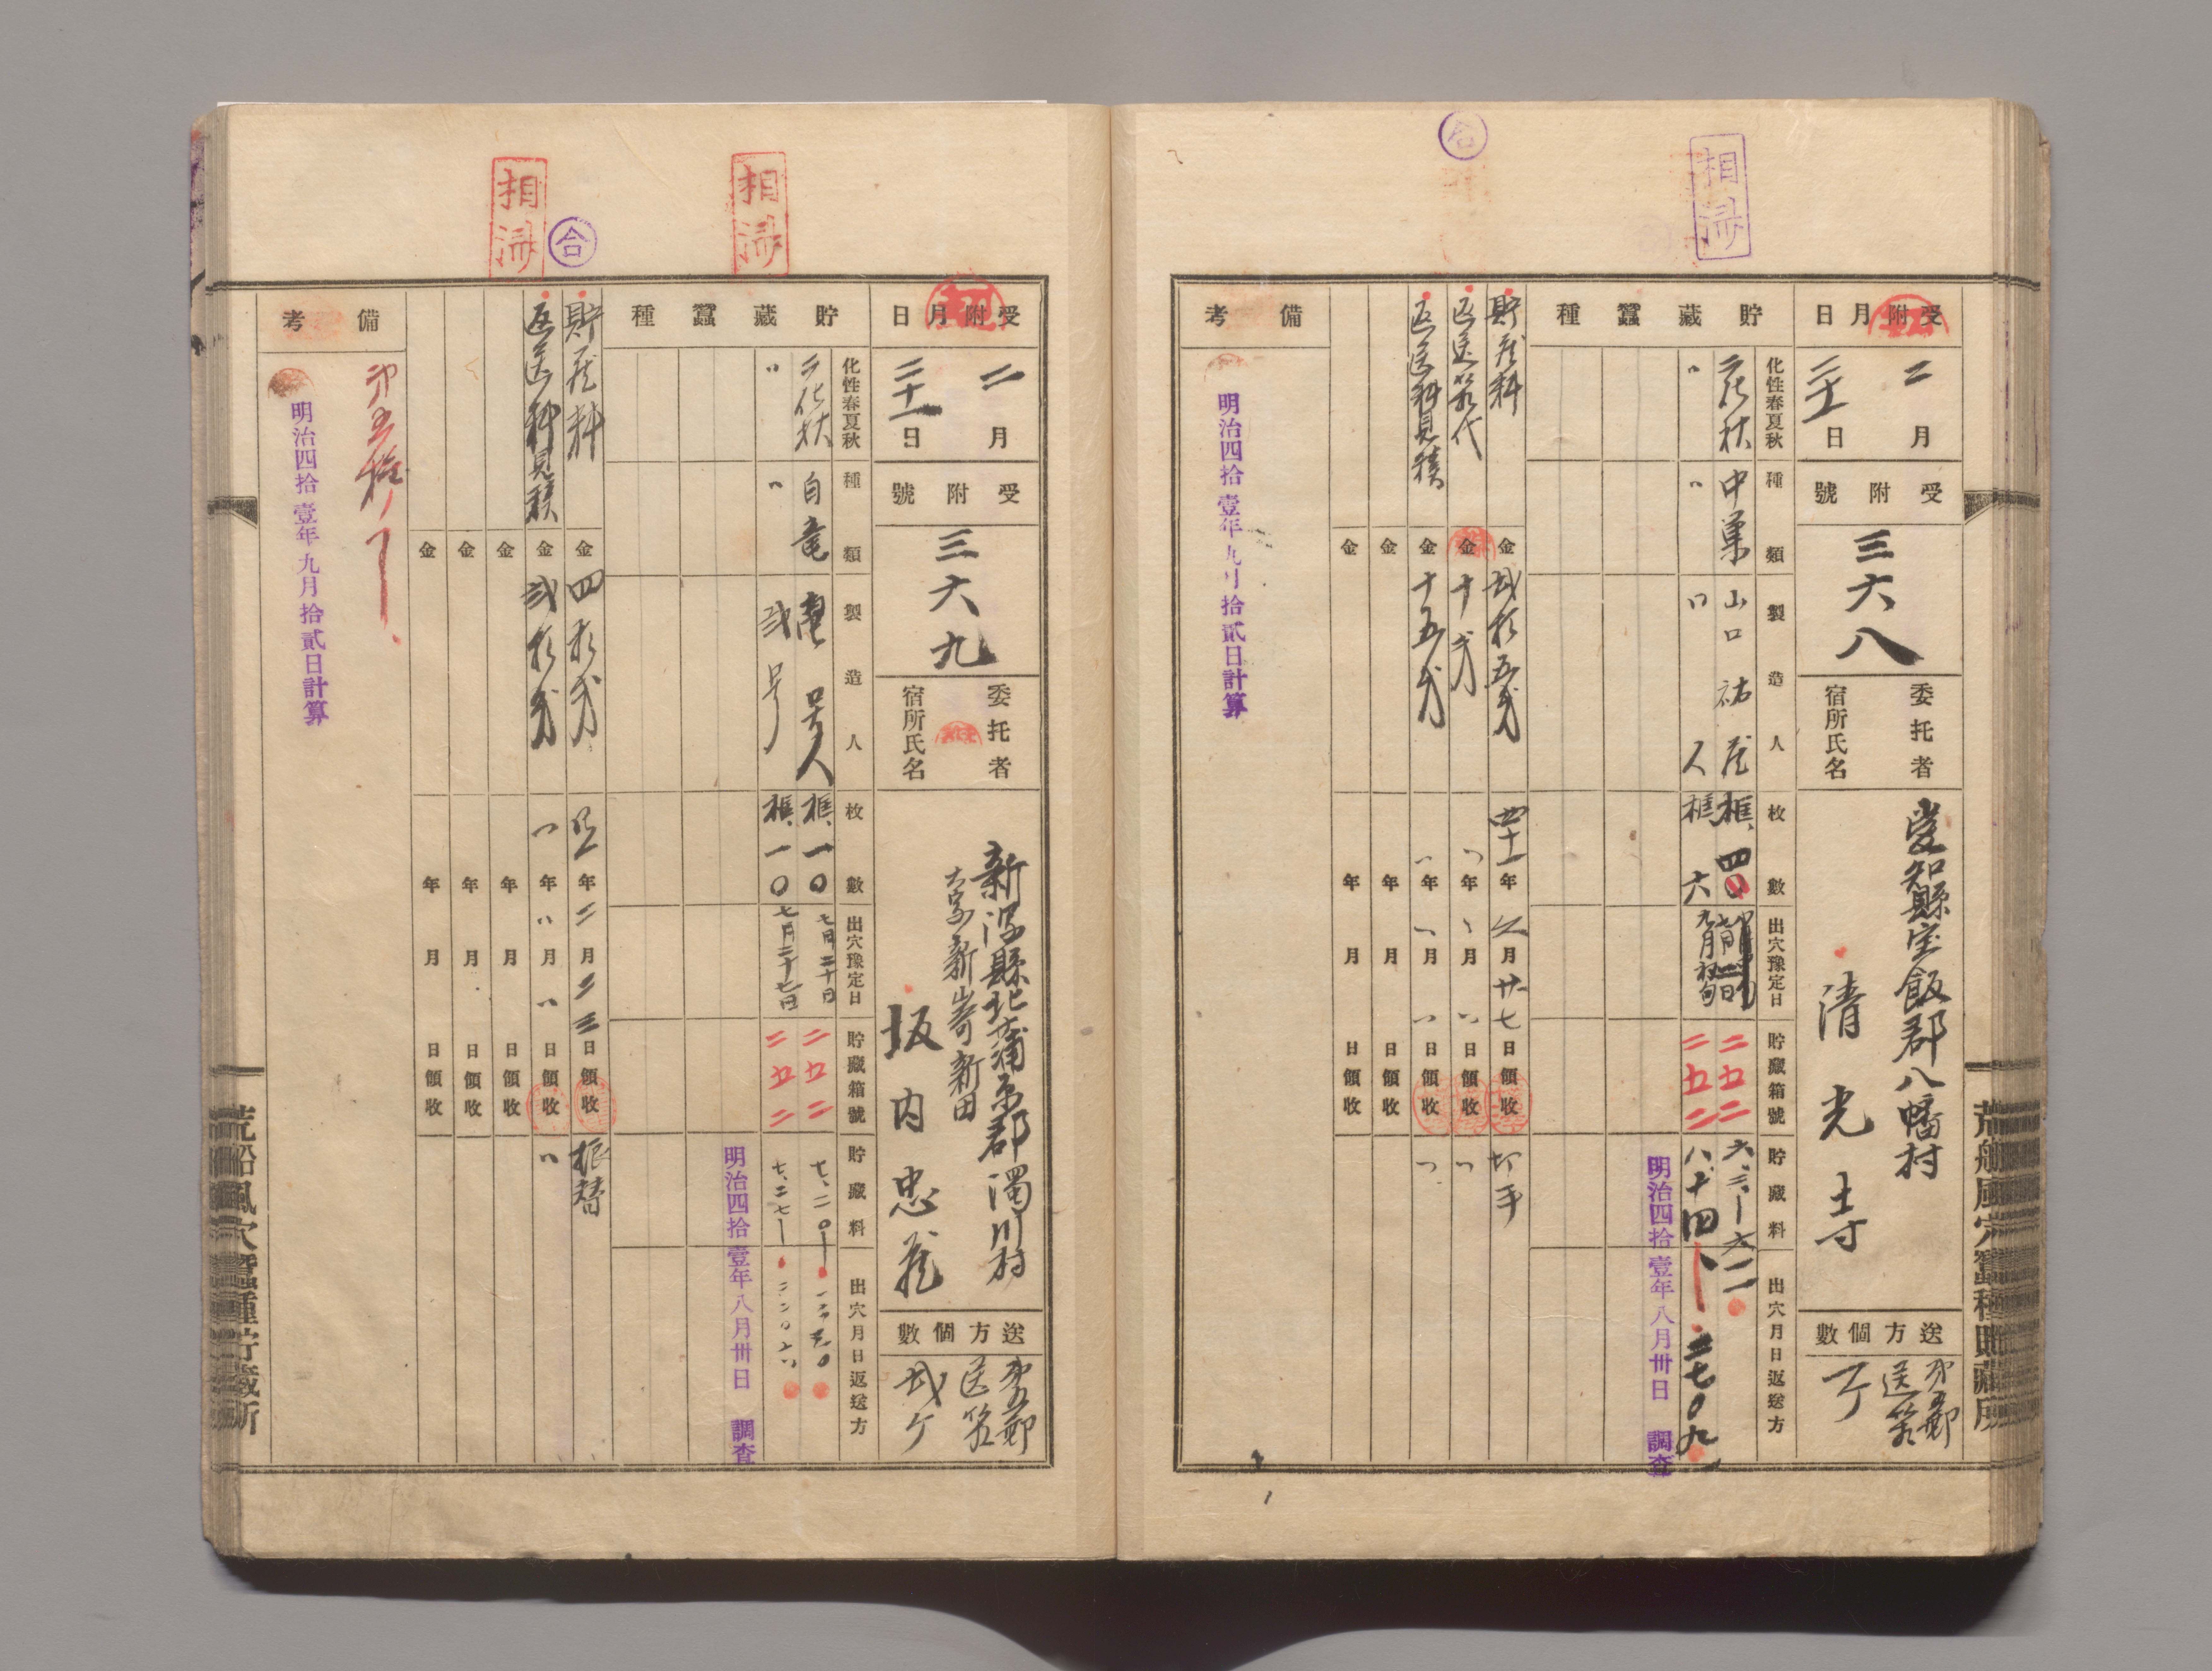 相済
合
受附月日
二月
二十一日
受附號
三六八
委托者
宿所氏名
愛知縣宝飯郡八幡村
清光寺
送方個數
貯藏蠶種
化性春夏秋
種類
製造人
枚數
出穴豫定日
貯藏箱號
貯藏料
出穴月日返送方
二化秋 中巣 山口祐蔵 框、四〇
二五二
〃 〃 〃 人 框 六 九月初旬 二五二
明治四拾壹年八月卅日 調査
貯蔵料 金弐拾五戋 四十一年 月廿七日領收 切手
返送箱代 金十戋 〃年〃月〃日領收 〃
返送料見積 金十五戋 〃年〃月〃日領收 〃
金 年 月 日領收
金 年 月 日領收
備考
明治四拾壹年九月拾貳日計算
相済
相済
合
受附月日
二月
二十一日
受附號
三六九
委托者
宿所氏名
新潟縣北蒲原郡濁川村
大字新崎新田
坂内忠蔵
送方個數
弐ケ
貯藏蠶種
化性春夏秋
種類
製造人
枚數
出穴豫定日
貯藏箱號
貯藏料
出穴月日返送方
二化秋 白竜 壱号人 框、一〇 七月二十日 二五二
〃 〃 弐号 框、一〇 七月二十七日 二五二
明治四拾壹年八月卅日 調査
貯蔵料 金四拾戋 年二月二三日領收 振替
返送料見積 金弐拾戋 〃年〃月〃日領收 〃
金 年 月 日領收
金 年 月 日領收
金 年 月 日領收
備考
明治四拾壹年九月拾貳日計算
荒船風穴蠶種貯藏所